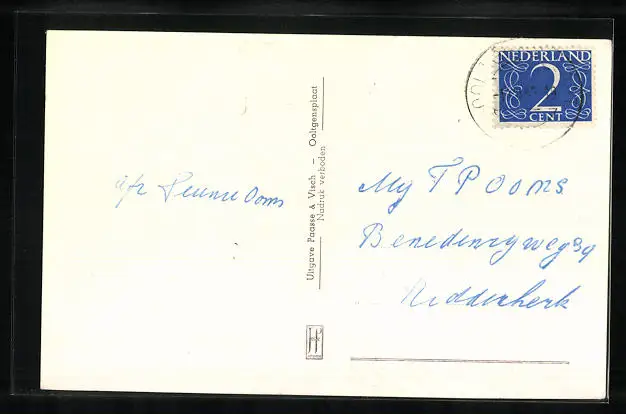 NEDERLAND
2
CENT
Uitgave Paasse & Visch – Ooltgensplaat
Nadruk verboden
afz Ooms
My T P Ooms
Benedenryweg
Ridderkerk